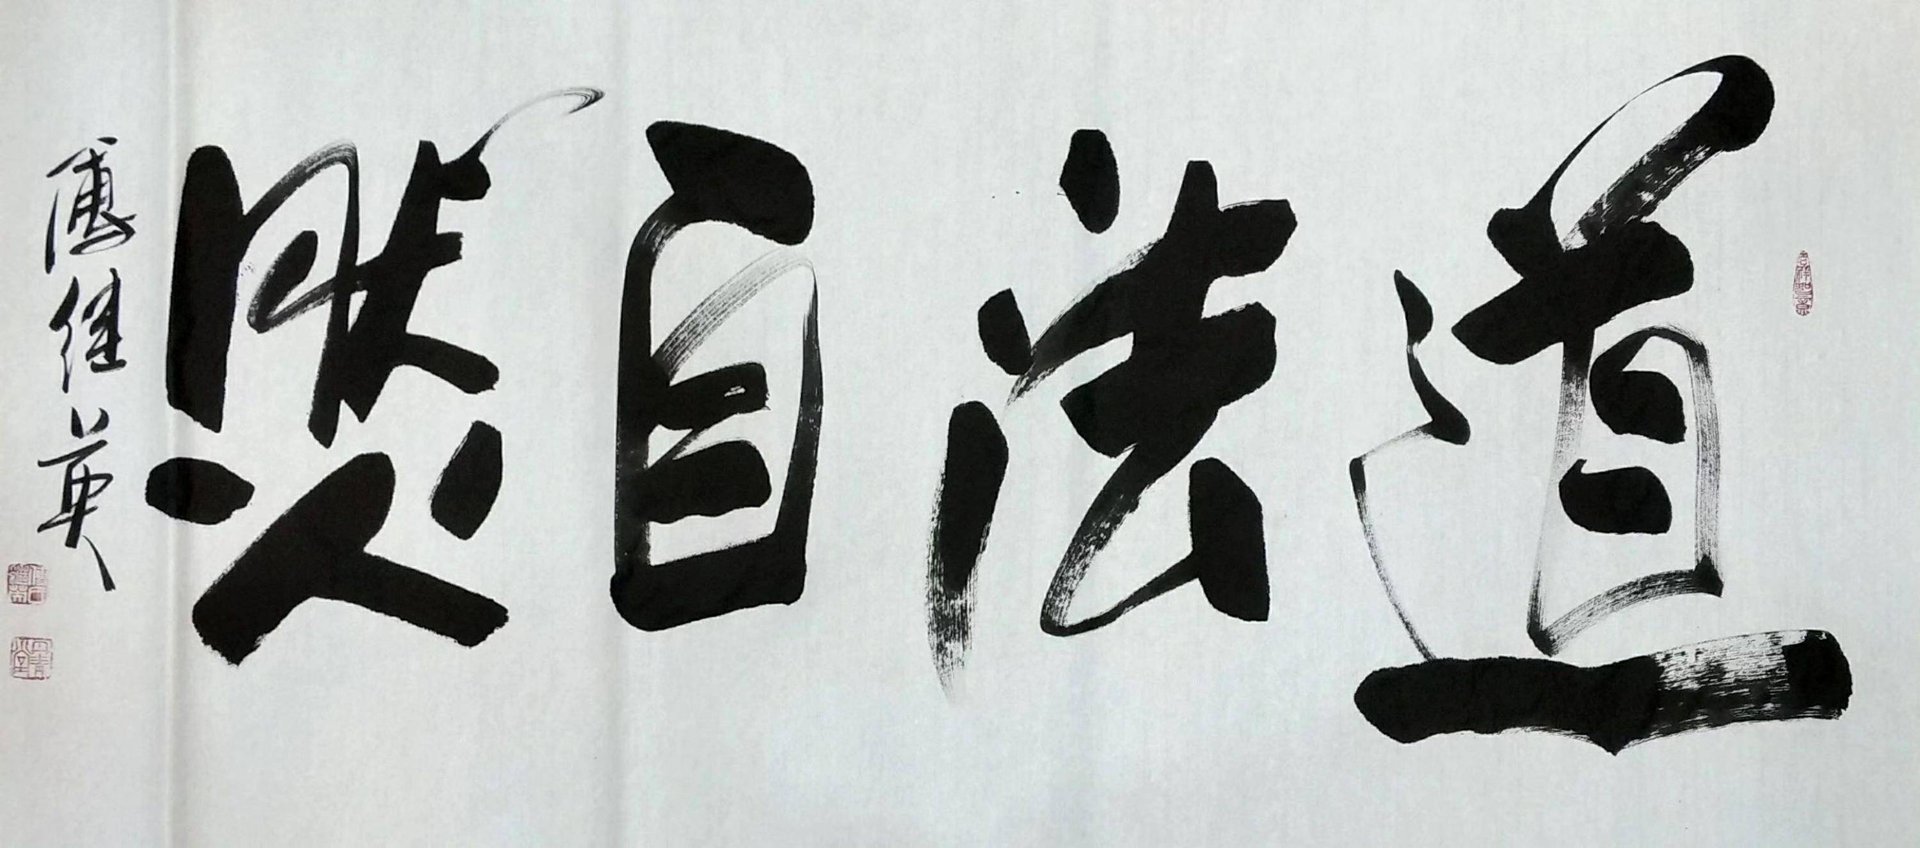 道法自然
傅继英